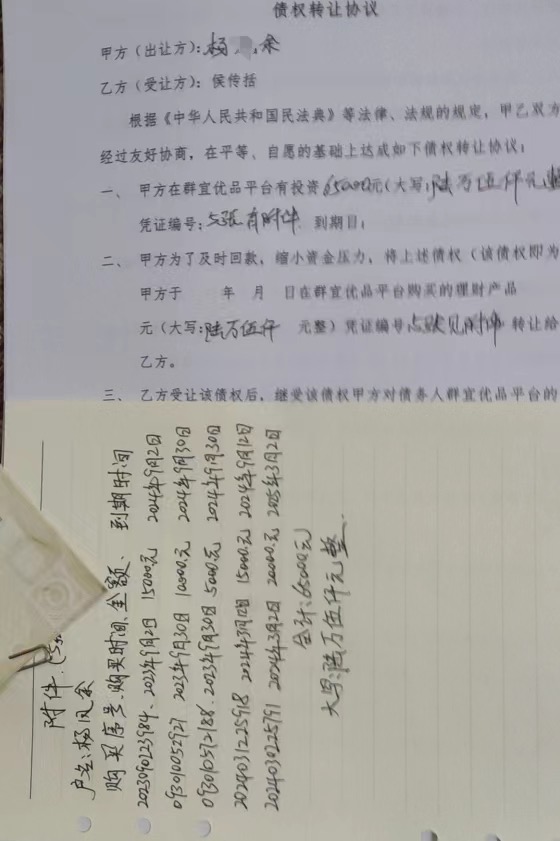 债权转让协议
甲方（出让方）：杨 余
乙方（受让方）：侯传括
根据《中华人民共和国民法典》等法律、法规的规定，甲乙双方
经过友好协商，在平等、自愿的基础上达成如下债权转让协议：
一、 甲方在群宜优品平台有投资65000元（大写：陆万伍仟元整
凭证编号：5张有附件 到期日：
二、 甲方为了及时回款，缩小资金压力，将上述债权（该债权即为
甲方于 年 月 日在群宜优品平台购买的理财产品
元（大写：陆万伍仟 元整）凭证编号5张见附件转让给
乙方。
三、 乙方受让该债权后，继受该债权甲方对债务人群宜优品平台的
附件（5
户名：杨凤余
购买序号、购买时间、金额、到期时间
2023090123984、2023年9月2日 15000元 2024年9月2日
093010052927 2023年9月30日 10000元 2024年9月30日
093010572188、2023年9月30日 5000元 2024年9月30日
2024031225918 2024年3月12日 15000元 2024年9月12日
2024030225791 2024年3月2日 20000元 2025年3月2日
合计：65000元
大写：陆万伍仟元整